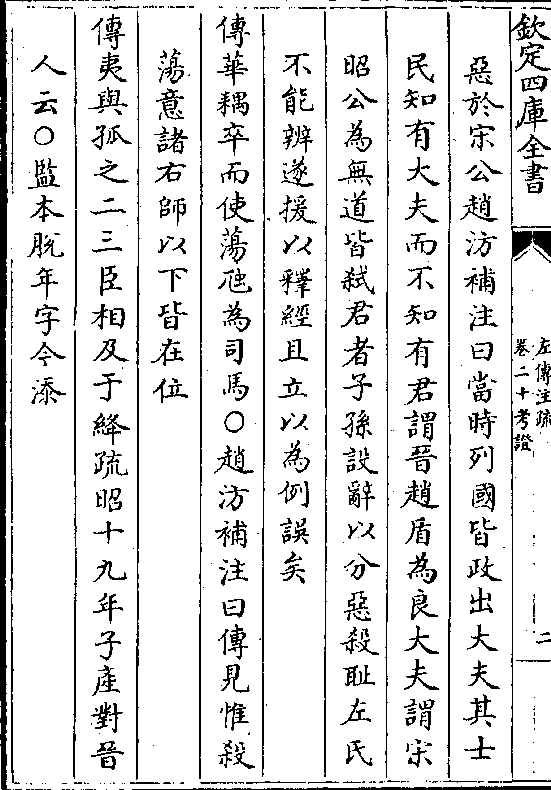 欽定四庫全書
左傳注疏
卷二十考證
二
惡於宋公趙汸補注曰當時列國皆政出大夫其士
民知有大夫而不知有君謂晉趙盾為良大夫謂宋
昭公為無道皆弑君者子孫設辭以分惡殺耻左氏
不能辨遂援以釋經且立以為例誤矣
傳華耦卒而使蕩虺為司馬○趙汸補注曰傳見惟殺
蕩意諸右師以下皆在位
傳夷與孤之二三臣相及于絳疏昭十九年子產對晉
人云○監本脫年字今添